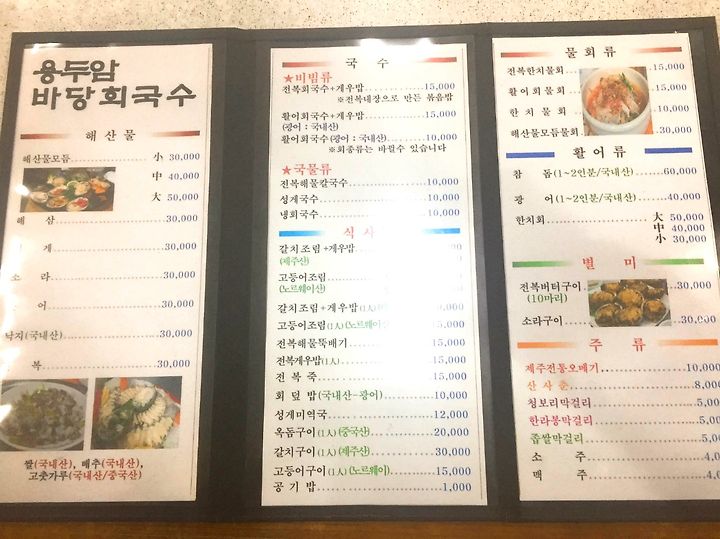 용두암
바당회국수
해산물
해산물모듬 小 30,000
中 40,000
大 50,000
해 삼 30,000
게 30,000
소 라 30,000
어 30,000
낙지(국내산) 30,000
복 30,000
쌀(국내산), 배추(국내산),
고춧가루(국내산/중국산)
국 수
★비빔류
전복회국수+게우밥 15,000
※전복내장으로 만든 볶음밥
활어회국수+게우밥 15,000
(광어:국내산)
활어회국수(광어:국내산) 10,000
※회종류는 바뀔수 있습니다
★국물류
전복해물칼국수 10,000
성게국수 10,000
냉회국수 10,000
식 사
갈치조림+게우밥
(제주산)
고등어조림
(노르웨이산)
갈치조림+게우밥(1人)
고등어조림(1人)(노르웨이) 5,000
전복해물뚝배기 15,000
전복게우밥(1人) 15,000
전 복 죽 15,000
회 덮 밥(국내산-광어) 10,000
성게미역국 12,000
옥돔구이(1人)(중국산) 20,000
갈치구이(1人)(제주산) 30,000
고등어구이(1人)(노르웨이) 15,000
공 기 밥 1,000
물 회 류
전복한치물회 15,000
활어회물회 15,000
한 치 물 회 15,000
해산물모듬물회 30,000
활 어 류
참 돔(1~2인분/국내산) 60,000
광 어(1~2인분/국내산) 40,000
한치회 大 50,000
中 40,000
小 30,000
별 미
전복버터구이 30,000
(10마리)
소라구이 30,000
주 류
제주전통오메기 10,000
산 사 춘 8,00
청보리막걸리 5,00
한라봉막걸리 5,00
좁쌀막걸리 5,00
소 주 4,0
맥 주 4,0